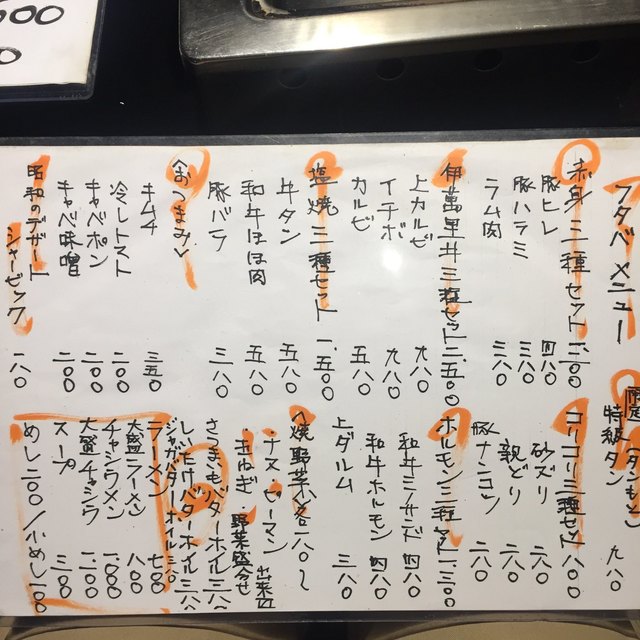 フタバメニュー
赤身三種セット 一、二〇〇
豚ヒレ 四八〇
豚ハラミ 三八〇
ラム肉 三八〇
伊萬里牛三種セット 二、五〇〇
上カルビ 九八〇
イチボ 九八〇
カルビ 五八〇
塩焼三種セット 一、五〇〇
牛タン 五八〇
和牛ほほ肉 五八〇
豚バラ 三八〇
〈おつまみ〉
キムチ 三五〇
冷しトマト 二〇〇
キャベポン 二〇〇
キャベ味噌 二〇〇
昭和のデザート
シャービック 一八〇
限定
特級タン 九八〇
コリコリ三種セット 八〇〇
砂ズリ 二八〇
親どり 二八〇
豚ナンコツ 二八〇
ホルモン三種セット 一、三〇〇
和牛ミノサンド 四八〇
和牛ホルモン 四八〇
上ダルム 三八〇
〈焼野菜 八〇〜
ナス ピーマン
玉ねぎ 野菜盛合せ 出来〼
さつまいもバターホイル 三八〇
しいたけバターホイル 三八〇
ジャガバターホイル 三八〇
ラーメン 七〇〇
大盛ラーメン 八〇〇
チャシウメン 一、〇〇〇
大盛チャシウ 一、一〇〇
スープ 三〇〇
めし 二〇〇/小めし 一〇〇